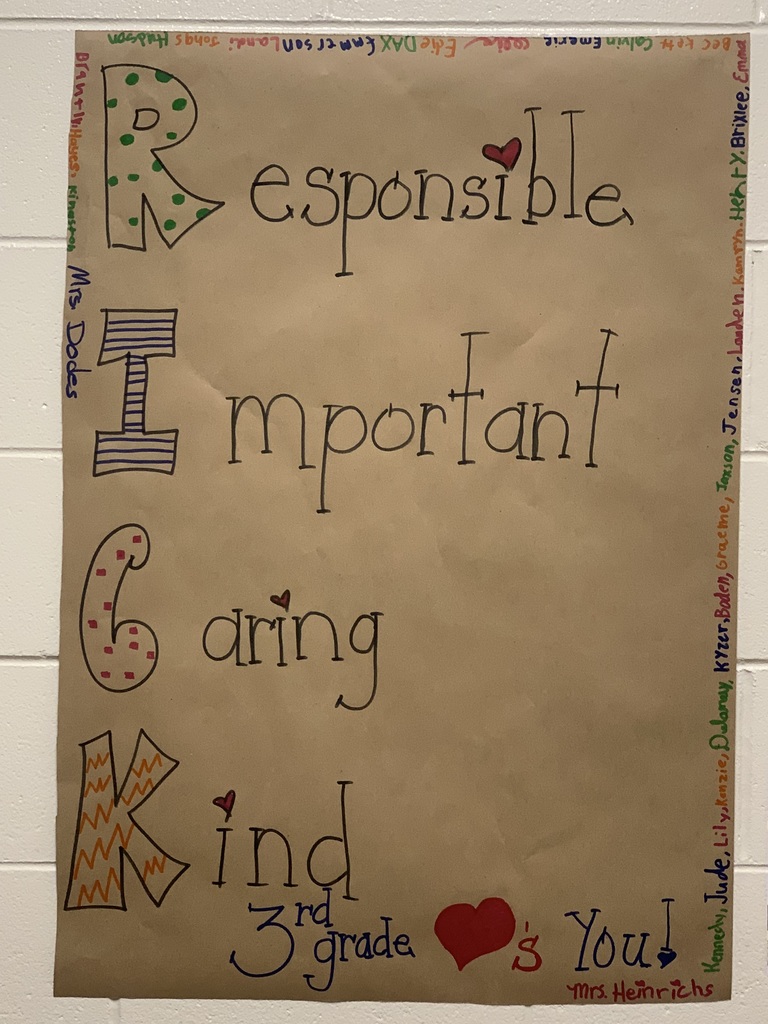 Beckett Calvin Emerie Edie DAX Emmerson Landi Jonas Hudson
Hayes, Kingston Mrs. Dodes
Responsible
Important
Caring
Kind
3rd grade ♥'s You!
Mrs. Heinrichs
Kennedy, Jude, Lily, Kenzie, Delaney, Kyzer, Baden, Graeme, Jaxson, Jensen, Landen, Kamryn, Henry, Brixlee, Emma